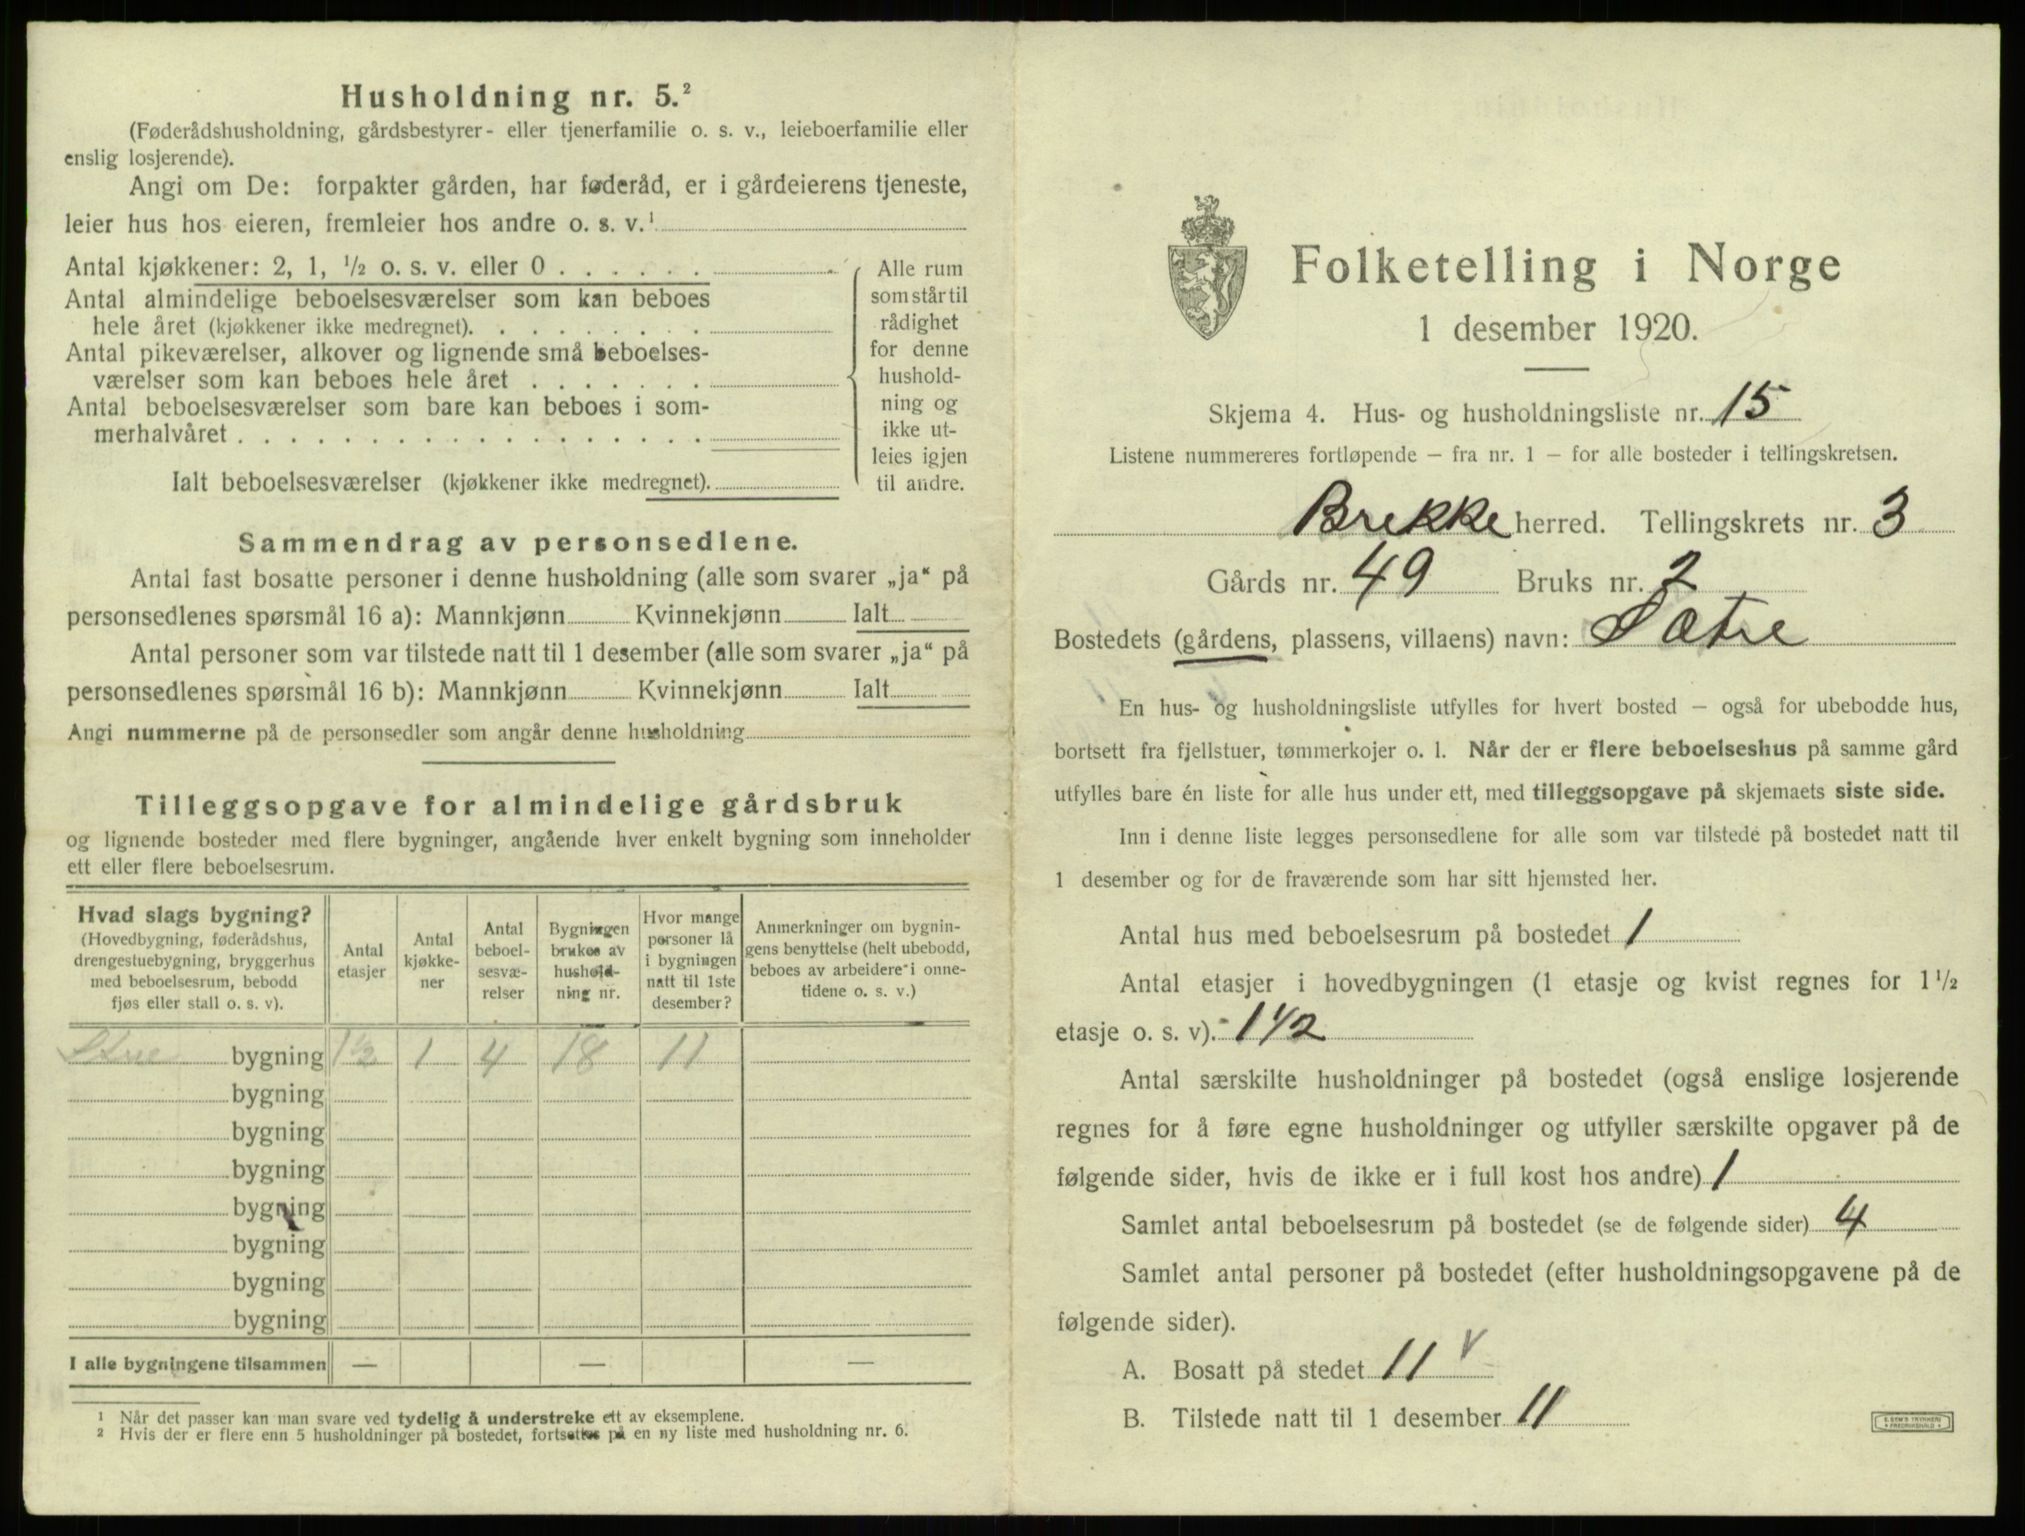 Husholdning nr. 5.²
(Føderådshusholdning, gårdsbestyrer- eller tjenerfamilie o. s. v., leieboerfamilie eller
enslig losjerende).
Angi om De: forpakter gården, har føderåd, er i gårdeierens tjeneste,
leier hus hos eieren, fremleier hos andre o. s. v.¹
Antal kjøkkener: 2, 1, ½ o. s. v. eller 0 . . . . . .
Antal almindelige beboelsesværelser som kan beboes
hele året (kjøkkener ikke medregnet). . . . . . . . .
Antal pikeværelser, alkover og lignende små beboelses-
værelser som kan beboes hele året . . . . . . .
Antal beboelsesværelser som bare kan beboes i som-
merhalvåret . . . . . . . . . . . . . . . . . .
Ialt beboelsesværelser (kjøkkener ikke medregnet).
Alle rum
som står til
rådighet
for denne
hushold-
ning og
ikke ut-
leies igjen
til andre.
Sammendrag av personsedlene.
Antal fast bosatte personer i denne husholdning (alle som svarer „ja“ på
personsedlenes spørsmål 16 a): Mannkjønn Kvinnekjønn Ialt
Antal personer som var tilstede natt til 1 desember (alle som svarer „ja“ på
personsedlenes spørsmål 16 b): Mannkjønn Kvinnekjønn Ialt
Angi nummerne på de personsedler som angår denne husholdning
Tilleggsopgave for almindelige gårdsbruk
og lignende bosteder med flere bygninger, angående hver enkelt bygning som inneholder
ett eller flere beboelsesrum.
Hvad slags bygning?
(Hovedbygning, føderådshus,
drengestuebygning, bryggerhus
med beboelsesrum, bebodd
fjøs eller stall o. s. v).
Antal
etasjer
Antal
kjøkke-
ner
Antal
beboel-
sesvæ-
relser
Bygningen
brukes av
hushold-
ning nr.
Hvor mange
personer lå
i bygningen
natt til 1ste
desember?
Anmerkninger om bygnin-
gens benyttelse (helt ubebodd,
beboes av arbeidere i onne-
tidene o. s. v.)
bygning 1½ 1 4 18 11
bygning
bygning
bygning
bygning
bygning
bygning
bygning
I alle bygningene tilsammen — — —
¹ Når det passer kan man svare ved tydelig å understreke ett av eksemplene.
² Hvis der er flere enn 5 husholdninger på bostedet, fortsettes på en ny liste med husholdning nr. 6.
Folketelling i Norge
1 desember 1920.
Skjema 4. Hus- og husholdningsliste nr. 15
Listene nummereres fortløpende – fra nr. 1 – for alle bosteder i tellingskretsen.
Brekke herred. Tellingskrets nr. 3
Gårds nr. 49 Bruks nr. 2
Bostedets (gårdens, plassens, villaens) navn: Sætre
En hus- og husholdningsliste utfylles for hvert bosted – også for ubebodde hus,
bortsett fra fjellstuer, tømmerkojer o. l. Når der er flere beboelseshus på samme gård
utfylles bare én liste for alle hus under ett, med tilleggsopgave på skjemaets siste side.
Inn i denne liste legges personsedlene for alle som var tilstede på bostedet natt til
1 desember og for de fraværende som har sitt hjemsted her.
Antal hus med beboelsesrum på bostedet 1
Antal etasjer i hovedbygningen (1 etasje og kvist regnes for 1½
etasje o. s. v). 1½
Antal særskilte husholdninger på bostedet (også enslige losjerende
regnes for å føre egne husholdninger og utfyller særskilte opgaver på de
følgende sider, hvis de ikke er i full kost hos andre) 1
Samlet antal beboelsesrum på bostedet (se de følgende sider) 4
Samlet antal personer på bostedet (efter husholdningsopgavene på de
følgende sider).
A. Bosatt på stedet 11 v
B. Tilstede natt til 1 desember 11
E. SEM'S TRYKKERI
FREDRIKSHALD